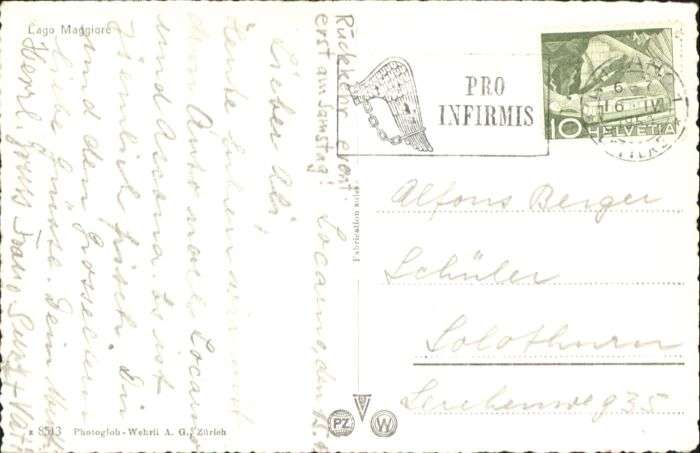 Lago Maggiore
Rückkehr event.
erst am Samstag!
Locarno, den 15.4
Lieber Abi,
Heute fahren wir mit
dem Auto nach Locarno
und Ascona. Es ist
ziemlich frisch. Dir
und den Grosseltern
liebe Grüsse. Dein
Herzl. Gruss Franz
PRO
INFIRMIS
10 HELVETIA
16. IV.
Fabrication suisse
Alfons Berger
Schüler
Solothurn
Lerchenweg 35
PZ
W
8513 Photoglob-Wehrli A. G., Zürich